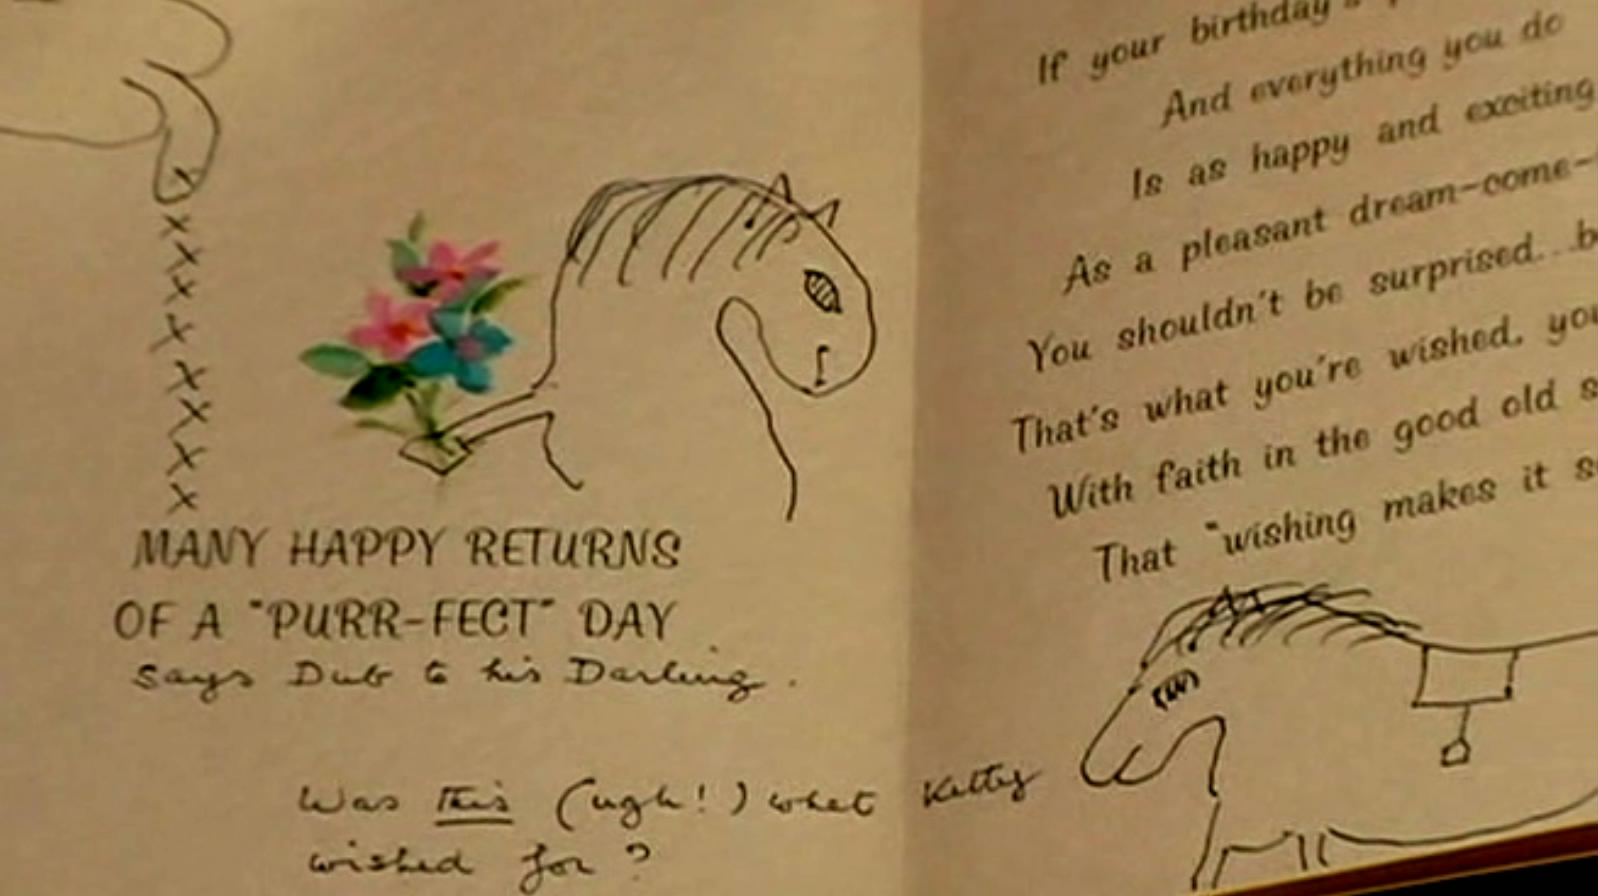 x
x
x
x
x
x
x
x
MANY HAPPY RETURNS
OF A "PURR-FECT" DAY
says Dub to his Darling.
Was this (ugh!) what Kitty
wished for?
If your birthday's
And everything you do
Is as happy and exciting
As a pleasant dream-come-
You shouldn't be surprised...b
That's what you're wished, you
With faith in the good old s
That "wishing makes it s